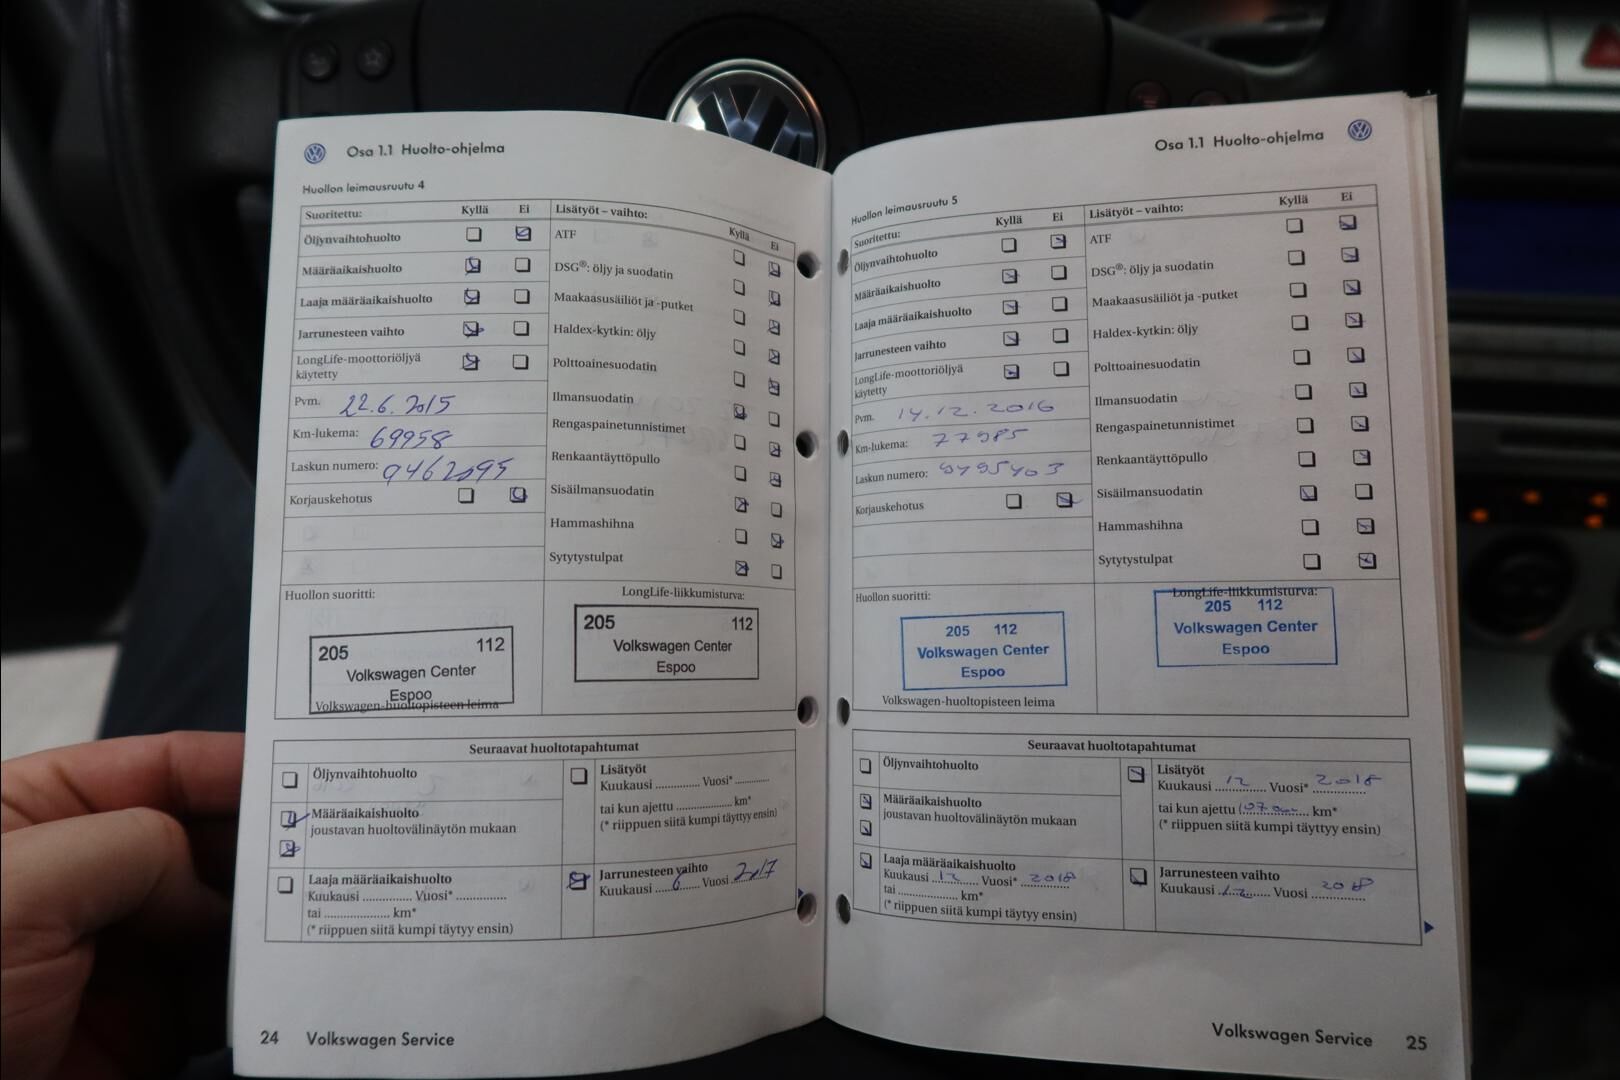 Osa 1.1 Huolto-ohjelma
Huollon leimausruutu 4
Suoritettu: Kyllä Ei
Öljynvaihtohuolto
Määräaikaishuolto
Laaja määräaikaishuolto
Jarrunesteen vaihto
LongLife-moottoriöljyä
käytetty
Pvm. 22.6.2015
Km-lukema: 69958
Laskun numero: 9462095
Korjauskehotus
Lisätyöt – vaihto: Kyllä Ei
ATF
DSG®: öljy ja suodatin
Maakaasusäiliöt ja -putket
Haldex-kytkin: öljy
Polttoainesuodatin
Ilmansuodatin
Rengaspainetunnistimet
Renkaantäyttöpullo
Sisäilmansuodatin
Hammashihna
Sytytystulpat
Huollon suoritti:
205 112
Volkswagen Center
Espoo
Volkswagen-huoltopisteen leima
LongLife-liikkumisturva:
205 112
Volkswagen Center
Espoo
Seuraavat huoltotapahtumat
Öljynvaihtohuolto
Määräaikaishuolto
joustavan huoltovälinäytön mukaan
Laaja määräaikaishuolto
Kuukausi .............. Vuosi* ..............
tai .................... km*
(* riippuen siitä kumpi täytyy ensin)
Lisätyöt
Kuukausi ............. Vuosi* ..........
tai kun ajettu .................. km*
(* riippuen siitä kumpi täyttyy ensin)
Jarrunesteen vaihto
Kuukausi 6 Vuosi 2017
24 Volkswagen Service
Osa 1.1 Huolto-ohjelma
Huollon leimausruutu 5
Suoritettu: Kyllä Ei
Öljynvaihtohuolto
Määräaikaishuolto
Laaja määräaikaishuolto
Jarrunesteen vaihto
LongLife-moottoriöljyä
käytetty
Pvm. 14.12.2016
Km-lukema: 77985
Laskun numero: 9495403
Korjauskehotus
Lisätyöt – vaihto: Kyllä Ei
ATF
DSG®: öljy ja suodatin
Maakaasusäiliöt ja -putket
Haldex-kytkin: öljy
Polttoainesuodatin
Ilmansuodatin
Rengaspainetunnistimet
Renkaantäyttöpullo
Sisäilmansuodatin
Hammashihna
Sytytystulpat
Huollon suoritti:
205 112
Volkswagen Center
Espoo
Volkswagen-huoltopisteen leima
LongLife-liikkumisturva:
205 112
Volkswagen Center
Espoo
Seuraavat huoltotapahtumat
Öljynvaihtohuolto
Määräaikaishuolto
joustavan huoltovälinäytön mukaan
Laaja määräaikaishuolto
Kuukausi 12 Vuosi* 2018
tai .................. km*
(* riippuen siitä kumpi täytyy ensin)
Lisätyöt
Kuukausi 12 Vuosi* 2018
tai kun ajettu km*
(* riippuen siitä kumpi täyttyy ensin)
Jarrunesteen vaihto
Kuukausi 12 Vuosi 2018
Volkswagen Service 25